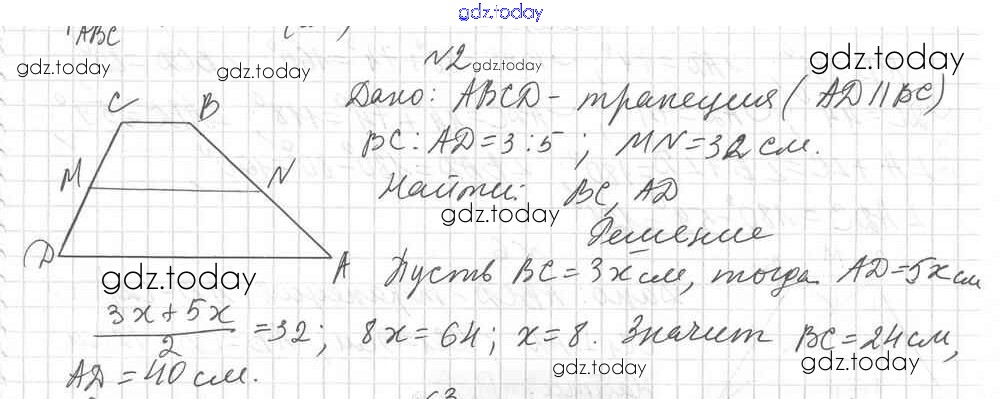 gdz.today
ABC
№2 gdz.today
gdz.today gdz.today gdz.today
C B Дано: ABCD - трапеция (AD || BC)
BC : AD = 3 : 5 ; MN = 32 см.
M N Найти: BC, AD
gdz.today
Решение
D A Пусть BC = 3x см, тогда AD = 5x см
gdz.today
(3x + 5x)/2 = 32; 8x = 64; x = 8. Значит BC = 24 см,
gdz.today gdz.today
AD = 40 см.